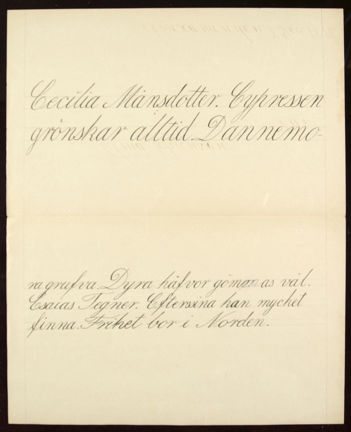 Cecilia Månsdotter. Cypressen
grönskar alltid. Dannemo-
ra grufva. Dyra håfvor gömas väl.
Esaias Tegner. Eftersina kan mycket
finna. Frihet bor i Norden.